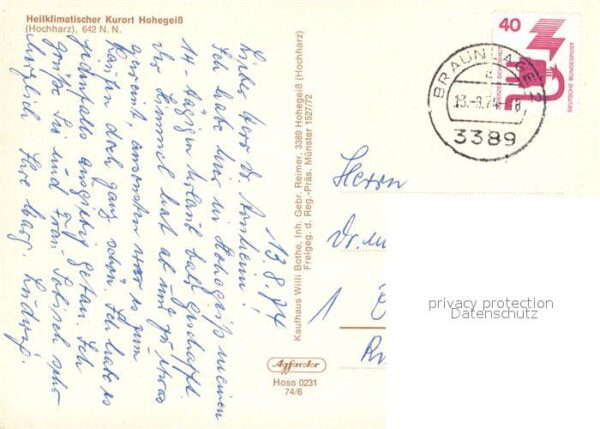 Heilklimatischer Kurort Hohegeiß
(Hochharz), 642 N. N.
13.8.74
Lieber Herr Dr.
Ich habe hier in Hohegeiß meinen
14-tägigen Urlaub bald geschafft
Der Himmel hat ab und zu etwas
geweint, ansonsten war es zum
doch ganz schön. Ich habe es
jedenfalls ausgiebig getan. Ich
grüße Sie und Frau sehr
herzlich Ihre Marg.
Kaufhaus Willi Bothe, Inh. Gebr. Reimer, 3389 Hohegeiß (Hochharz)
Freigeg. d. Reg.-Präs. Münster 1527/72
Agfacolor
Hoss 0231
74/6
40
DEUTSCHE BUNDESPOST
BRAUNLAGE 2
a
13.-8.74-18
3389
Herrn
Dr.
1
privacy protection
Datenschutz